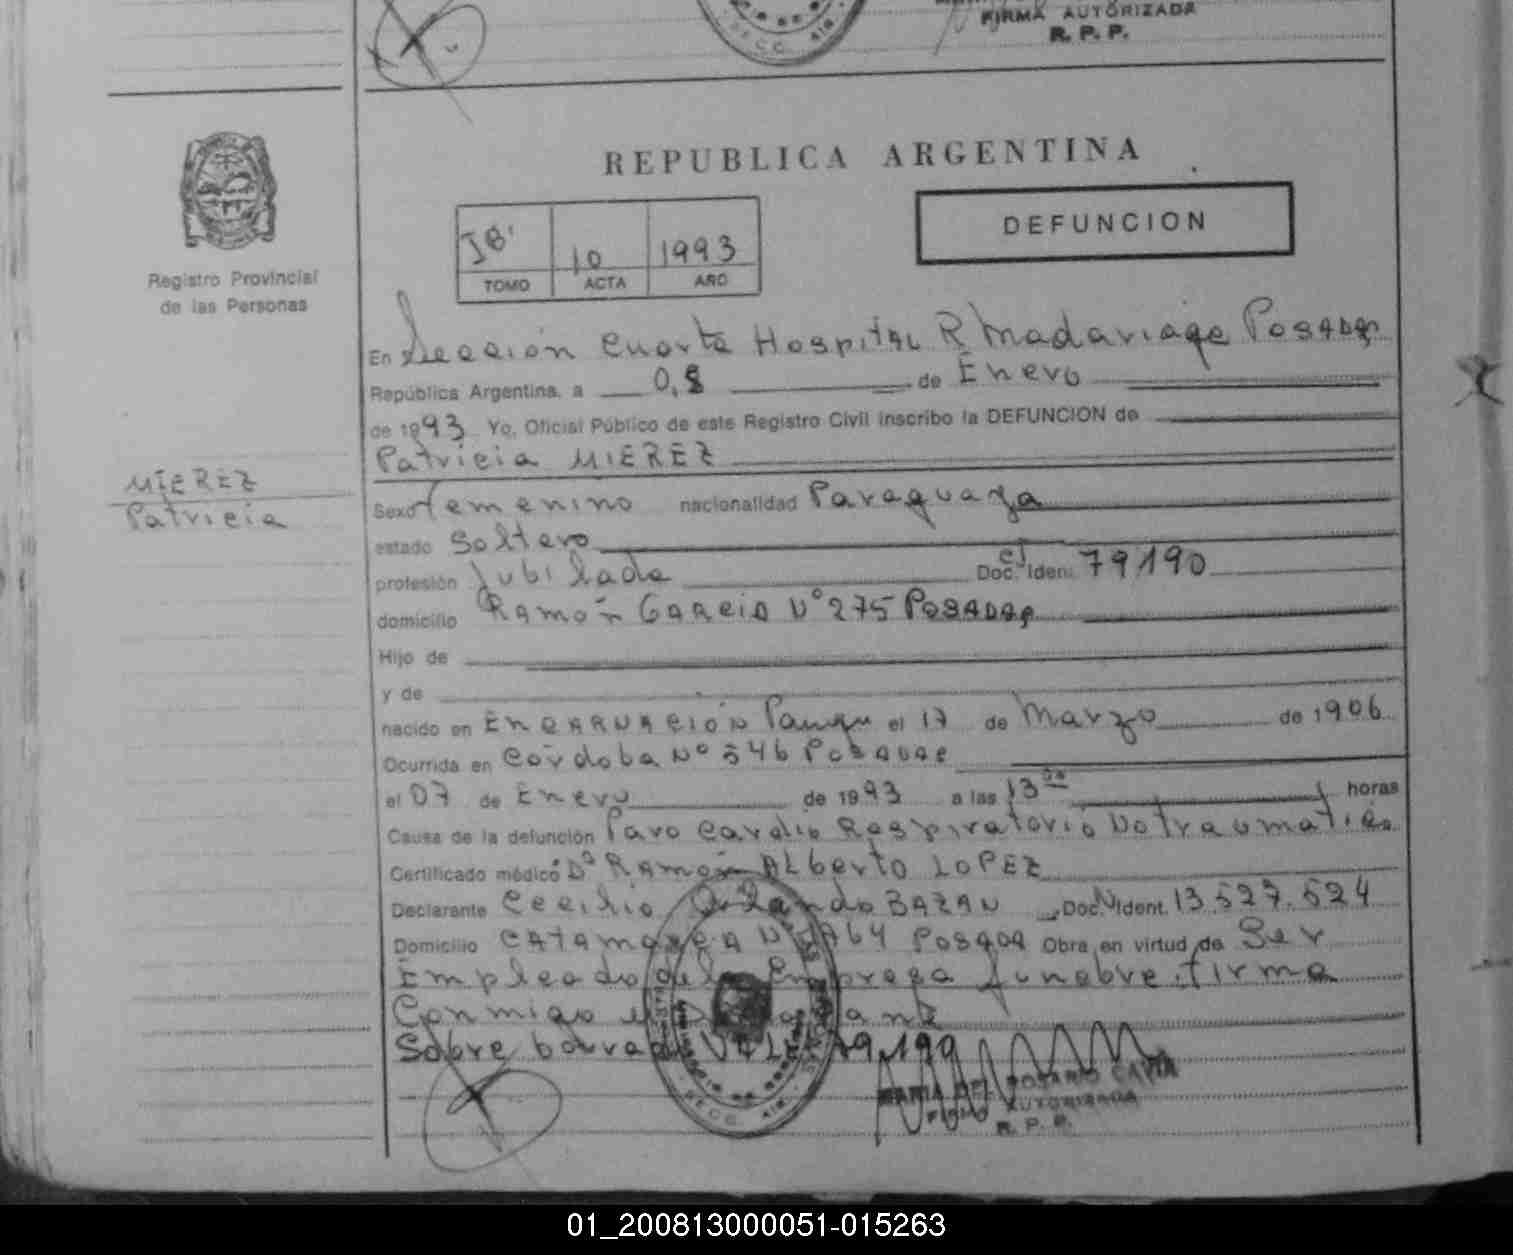 FIRMA AUTORIZADA
R. P. P.
REPUBLICA ARGENTINA
DEFUNCION
10 1993
TOMO ACTA AÑO
Registro Provincial
de las Personas
En Sección Cuarta Hospital R Madariaga Posadas
República Argentina, a 08 de Enero
de 1993 Yo, Oficial Público de este Registro Civil inscribo la DEFUNCION de
Patricia MIEREZ
MIEREZ
Patricia
Sexo Femenino nacionalidad Paraguaya
estado Soltero
profesión Jubilada Doc. Iden. CI 79.190
domicilio Ramón Garcia Nº 275 Posadas
Hijo de
y de
nacido en Encarnación el 17 de Marzo de 1906
Ocurrida en Córdoba Nº 346 Posadas
el 07 de Enero de 1993 a las 13 horas
Causa de la defunción Paro Cardio Respiratorio No traumatico
Certificado médico Dº Ramón Alberto LOPEZ
Declarante Cecilio Orlando BAZAN Doc. Ident. 13.527.524
Domicilio Catamarca Nº Posadas Obra en virtud de Ser
Empleado de Empresa funebre firma
Conmigo el Declarante
Sobre borrado VALE 79.190
MARIA DEL ROSARIO CAVIA
FIRMA AUTORIZADA
R. P. P.
01_200813000051-015263